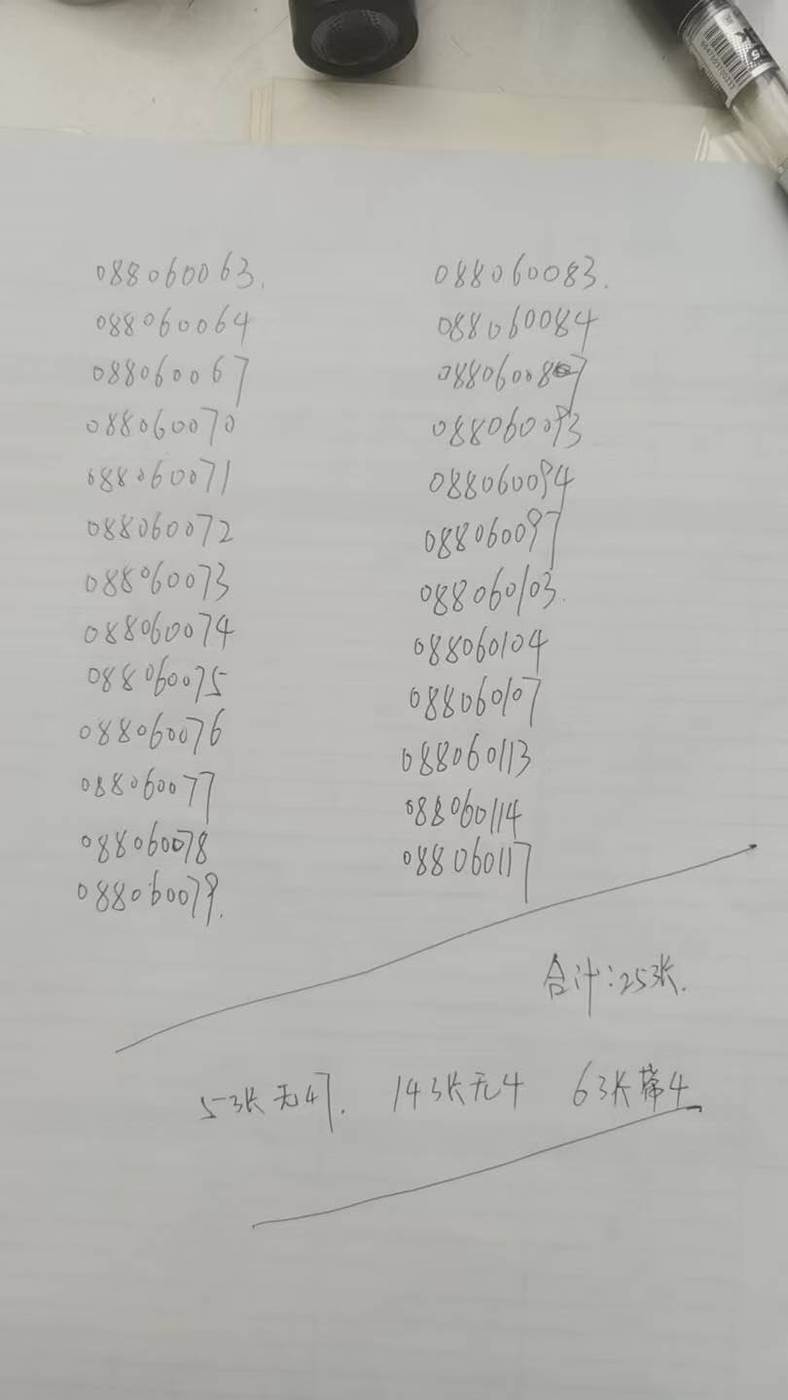 088060063.
088060064
088060067
088060070
088060071
088060072
088060073
088060074
088060075
088060076
088060077
088060078
088060079.
088060083.
088060084
088060087
088060093
088060094
088060097
088060103.
088060104
088060107
088060113
088060114
088060117
合计:25张.
5张无47. 14张无4 6张带4